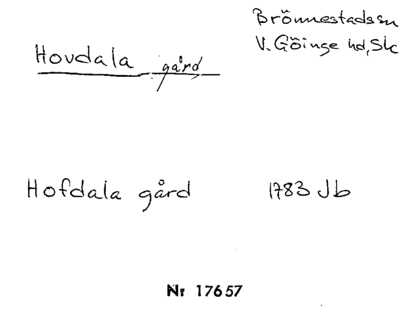 Brönnestads sn
V. Göinge hd, Sk
Hovdala gård
Hofdala gård 1783 Jb
Nr 17657